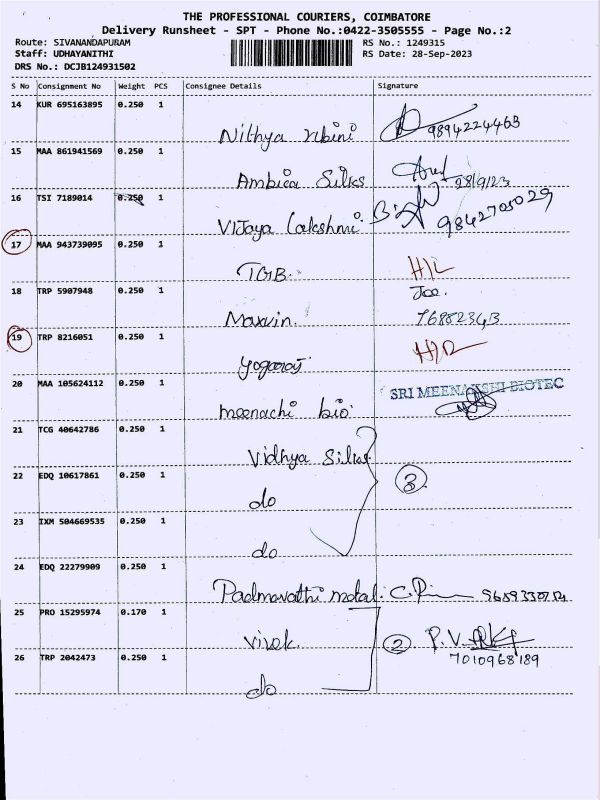 THE PROFESSIONAL COURIERS, COIMBATORE
Delivery Runsheet - SPT - Phone No.:0422-3505555 - Page No.:2
Route: SIVANANDAPURAM RS No.: 1249315
Staff: UDHAYANITHI RS Date: 28-Sep-2023
DRS No.: DCJB124931502
S No Consignment No Weight PCS Consignee Details Signature
14 KUR 695163895 0.250 1
Nithya 9894224463
15 MAA 861941569 0.250 1
Ambica Silks 28/9/23
16 TSI 7189014 0.250 1
Vijaya Lakshmi. 9842705029
17 MAA 943739095 0.250 1
TGB.
18 TRP 5907948 0.250 1 Joe.
19 TRP 8216051 0.250 1
Yogaraj
20 MAA 105624112 0.250 1 SRI MEENAKSHI BIOTEC
meenachi bio
21 TCG 40642786 0.250 1
Vidhya Silks
22 EDQ 10617861 0.250 1 3
do
23 IXM 504669535 0.250 1
do
24 EDQ 22279909 0.250 1
Padmavathi metal.
25 PRO 15295974 0.170 1
Vivek. 2 P.V.
7010968189
26 TRP 2042473 0.250 1
do